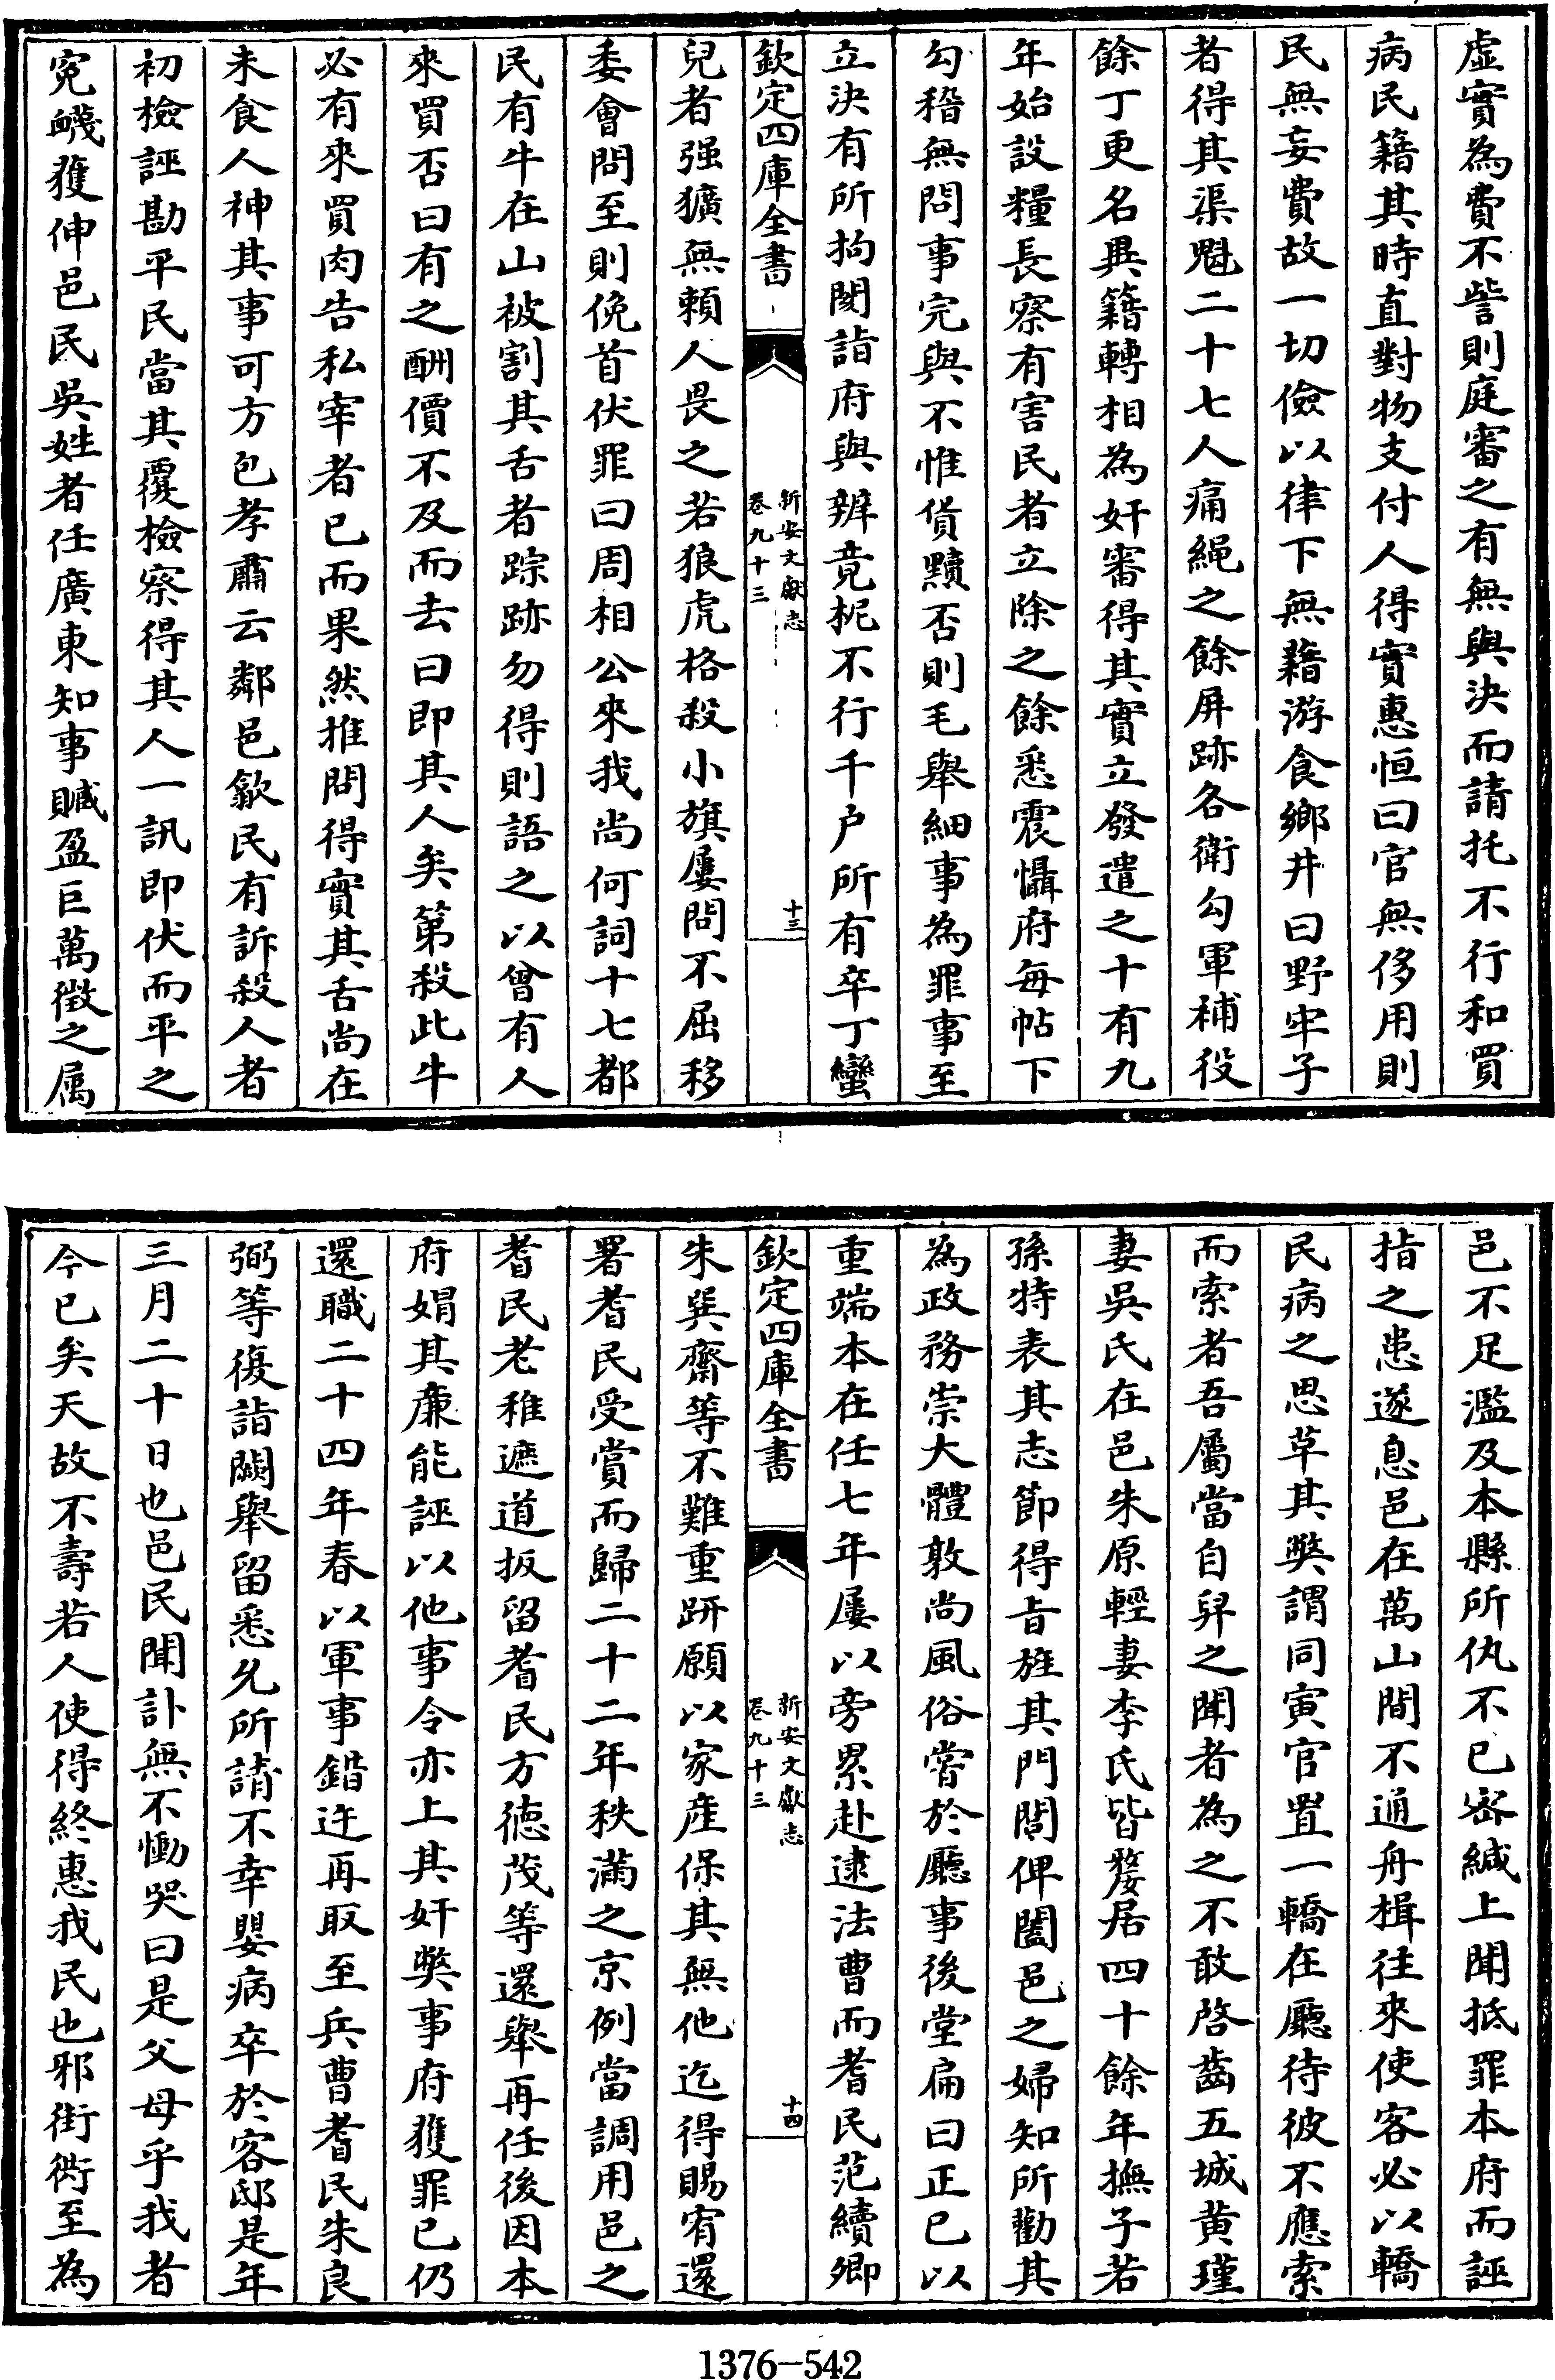 虚實為費不訾則庭審之有無與決而請托不行和買
病民籍其時直對物支付人得實惠恒曰官無侈用則
民無妄費故一切儉以律下無藉游食鄉井曰野牢子
者得其渠魁二十七人痛繩之餘屏跡各衛勾軍補役
餘丁更名異籍轉相為奸審得其實立發遣之十有九
年始設糧長察有害民者立除之餘悉震懾府每帖下
勾稽無問事完與不惟貨黷否則毛舉細事為罪事至
立決有所拘閡詣府與辨竟柅不行千户所有卒丁蠻
欽定四庫全書
新安文獻志
卷九十三
十三
兒者强獷無賴人畏之若狼虎格殺小旗屢問不屈移
委會問至則俛首伏罪曰周相公來我尚何詞十七都
民有牛在山被割其舌者踪跡勿得則語之以曾有人
來買否曰有之酬價不及而去曰即其人矣第殺此牛
必有來買肉告私宰者已而果然推問得實其舌尚在
未食人神其事可方包孝肅云鄰邑歙民有訴殺人者
初檢誣勘平民當其覆檢察得其人一訊即伏而平之
寃衊獲伸邑民吳姓者任廣東知事贓盈巨萬徵之属
邑不足濫及本縣所仇不已密緘上聞抵罪本府而誣
指之患遂息邑在萬山間不通舟楫往來使客必以轎
民病之思草其獘謂同寅官置一轎在廳待彼不應索
而索者吾屬當自舁之聞者為之不敢啓齒五城黄瑾
妻吳氏在邑朱原輕妻李氏皆嫠居四十餘年撫子若
孫特表其志節得旨旌其門閭俾闔邑之婦知所勸其
為政務崇大體敦尚風俗嘗於廳事後堂扁曰正己以
重端本在任七年屢以旁累赴逮法曹而耆民范續卿
欽定四庫全書
新安文獻志
卷九十三
十四
朱巽齋等不難重趼願以家産保其無他迄得賜宥還
署耆民受賞而歸二十二年秩滿之京例當調用邑之
耆民老稚遮道扳留耆民方德茂等還舉再任後因本
府娼其亷能誣以他事令亦上其奸獘事府獲罪已仍
還職二十四年春以軍事錯迕再取至兵曹耆民朱良
弼等復詣闕舉留悉允所請不幸嬰病卒於客邸是年
三月二十日也邑民聞訃無不慟哭曰是父母乎我者
今已矣天故不壽若人使得終惠我民也邪街衖至為
1376-542